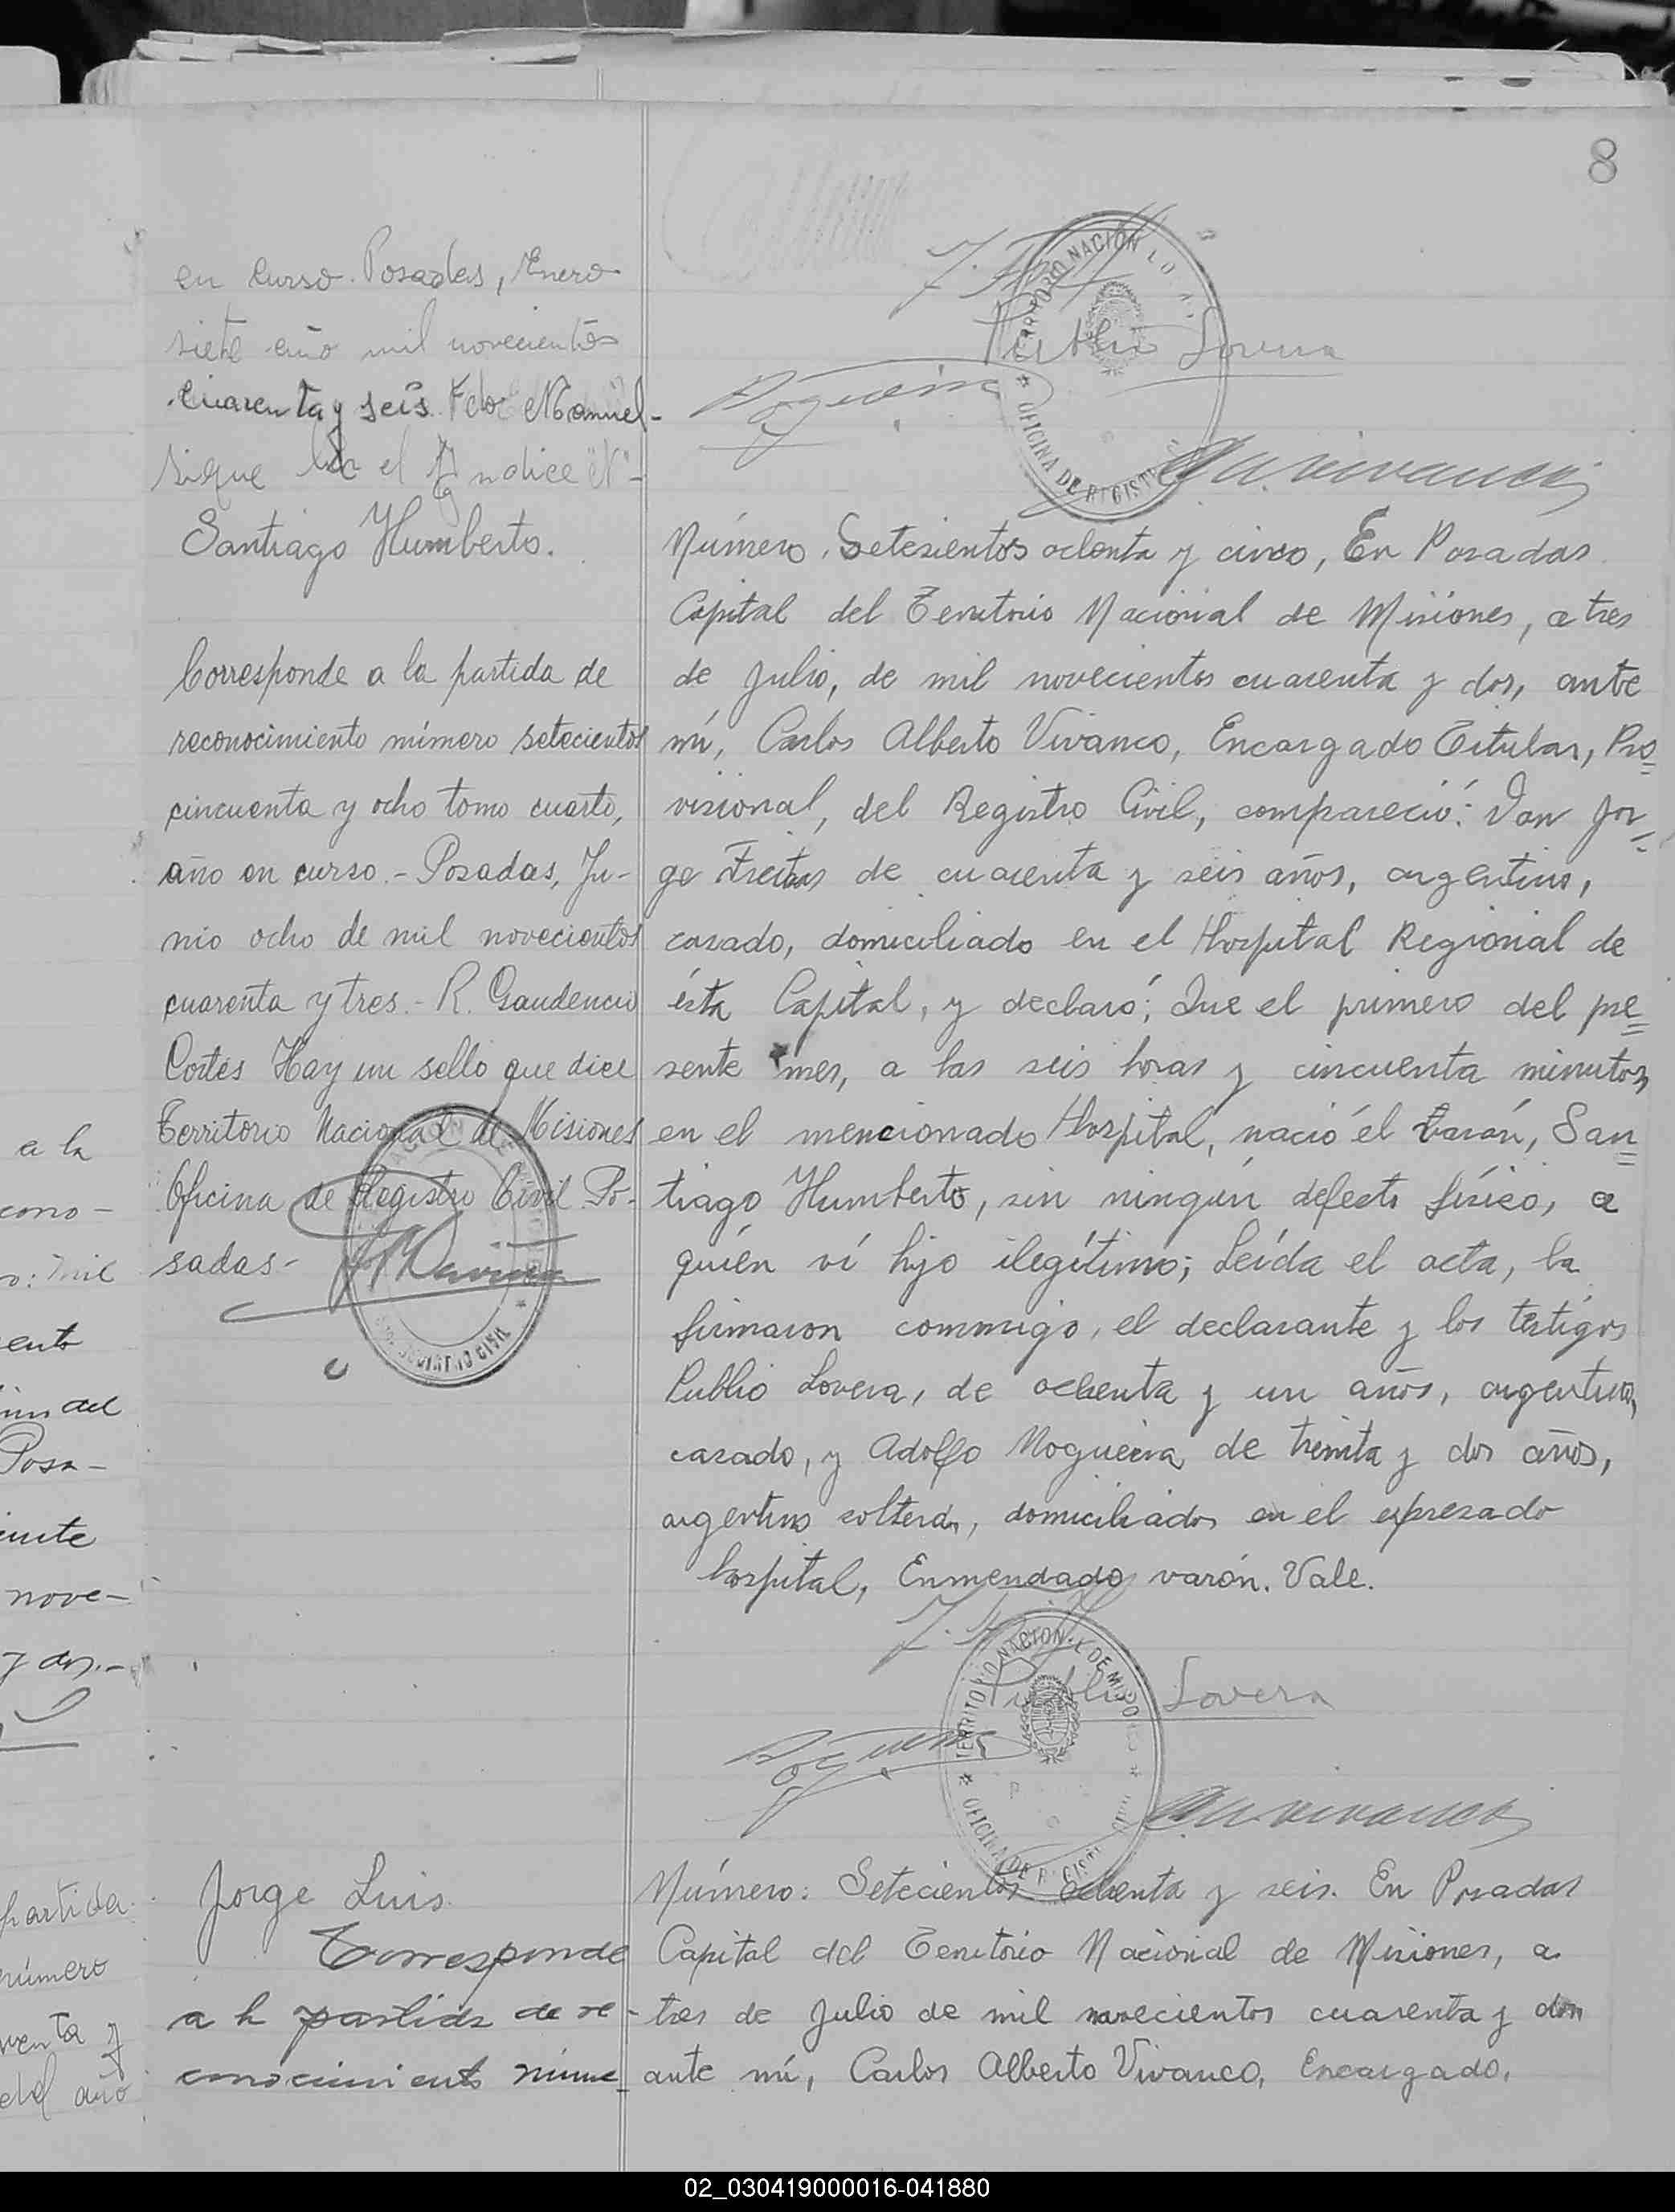 8
en curso. Posadas, Enero
siete año mil novecientos
cuarenta y seis. Manuel-
sigue el Indice "N"-
Publio Lovera
TERRITORIO NACION
OFICINA DE REGIST
Santiago Humberto.
Corresponde a la partida de
reconocimiento número setecientos
cincuenta y ocho tomo cuarto,
año en curso.- Posadas, Ju-
nio ocho de mil novecientos
cuarenta y tres.- R. Gaudencio
Cortés Hay un sello que dice
Territorio Nacional de Misiones
Oficina de Registro Civil Po-
sadas-
Número, Setesientos ochenta y cinco, En Posadas
Capital del Territorio Nacional de Misiones, a tres
de Julio, de mil novecientos cuarenta y dos, ante
mí, Carlos Alberto Vivanco, Encargado Titular, Pro=
visional, del Registro Civil, compareció: Don Jor=
ge Freitas de cuarenta y seis años, argentino,
casado, domiciliado en el Hospital Regional de
ésta Capital, y declaró; Que el primero del pre=
sente mes, a las seis horas y cincuenta minutos,
en el mencionado Hospital, nació el varón, San=
tiago Humberto, sin ningún defecto físico, a
quién ví hijo ilegítimo; Leída el acta, la
firmaron conmigo, el declarante y los testigos
Publio Lovera, de ochenta y un años, argentino,
casado, y Adolfo Nogueira, de treinta y dos años,
argentino soltero, domiciliados en el expresado
hospital, Enmendado varón. Vale.
Publio Lovera
TERRITORIO NACIONAL DE MISIO
OFICINA DE REGIST
Jorge Luis.
Corresponde
a la partida de re-
conocimiento núme-
Número: Setecientos ochenta y seis. En Posadas
Capital del Territorio Nacional de Misiones, a
tres de Julio de mil novecientos cuarenta y dos
ante mí, Carlos Alberto Vivanco, Encargado,
a la
cono-
o: mil
ento
del
Posa-
nove-
y dos.-
partida
número
enta y
del año
02_030419000016-041880